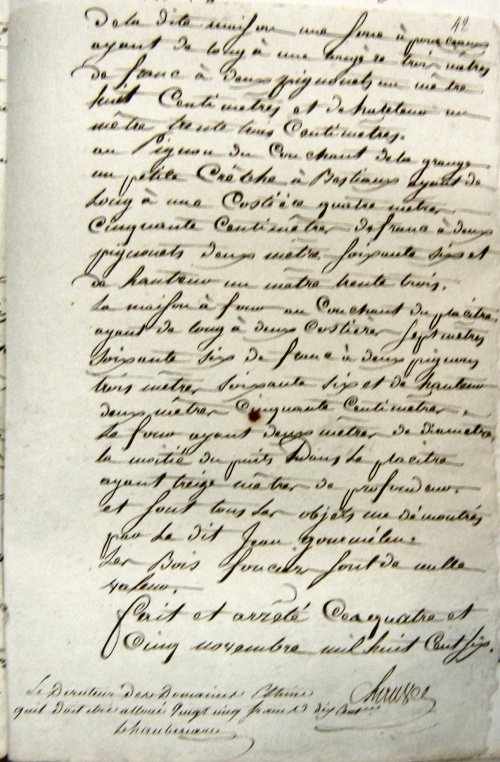 42
de la dite maison une soue à pourceaux
ayant de long à une longère trois mètres
de franc à deux pignouets un mètre
huit Centimètres et de hauteur un
mètre trente trois Centimètres.
au Pignon du Couchant de la grange
un petite Crêche à Bestiaux ayant de
Long à une Costière quatre mètres
Cinquante Centimètres de franc à deux
pignouets deux mètres soixante six et
de hauteur un mètre trente trois.
La maison à four au Couchant du placitre
ayant de long à deux Costières sept mètres
soixante six de franc à deux pignons
trois mètres soixante six et de hauteur
deux mètres Cinquante Centimètres.
Le four ayant deux mètres de diametre
la moitié du puits Dans Le placitre
ayant treize mètres de profondeur.
et sont tous Les objets me démontrés
par Le dit Jean gourmelen.
Les Bois fonciers sont de nulle
valeur.
fait et arrêté Ces quatre et
Cinq novembre mil huit Cent Six.
Le Directeur des Domaines Estime
qu'il doit être alloué Vingt cinq francs dix